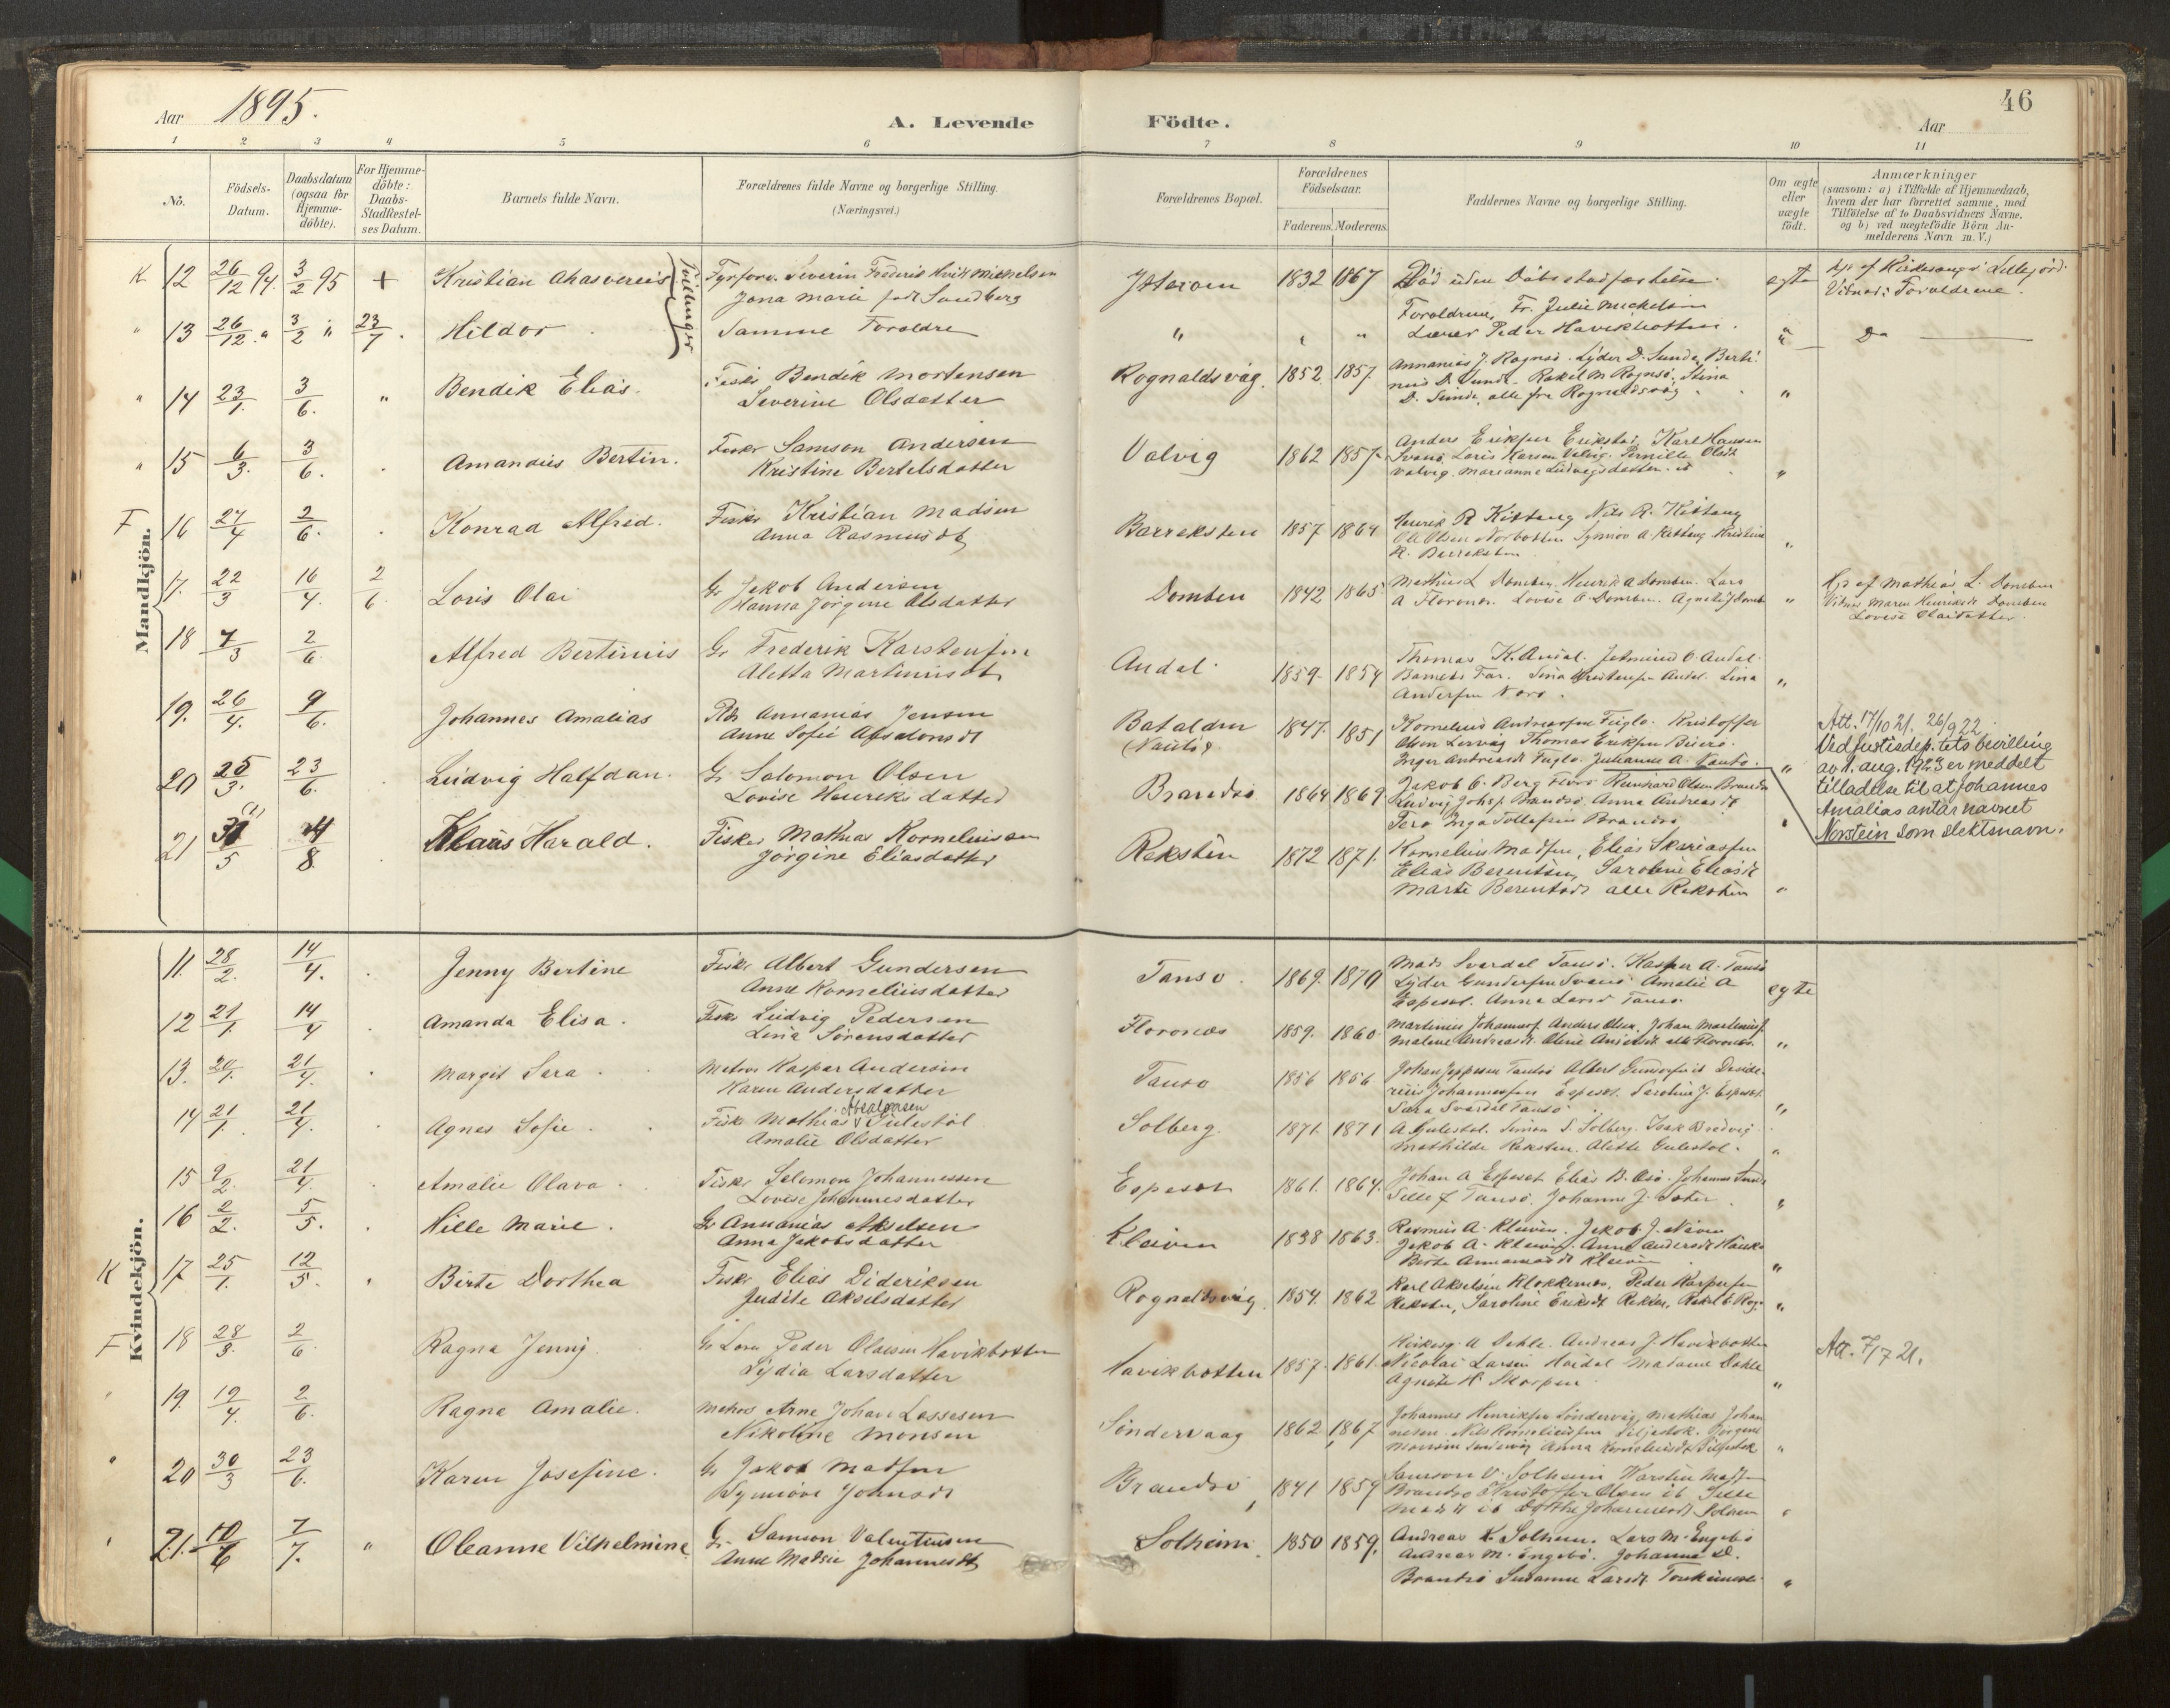 46
Aar 1895.
A. Levende Födte.
Aar
1 2 3 4 5 6 7 8 9 10 11
No.
Födsels-Datum.
Daabsdatum (ogsaa for Hjemme-döbte).
For Hjemme-döbte: Daabs-Stadfestel-ses Datum.
Barnets fulde Navn.
Forældrenes fulde Navne og borgerlige Stilling.
(Næringsvei.)
Forældrenes Bopæl.
Forældrenes Födselsaar.
Faderens. Moderens.
Faddernes Navne og borgerlige Stilling.
Om ægte eller uægte födt.
Anmærkninger
(saasom: a) i Tilfælde af Hjemmedaab,
hvem der har forrettet samme, med
Tilföielse af to Daabsvidners Navne.
og b) ved uægtefödte Börn An-
melderens Navn m. V.)
Mandkjön.
K 12 26/12 94. 3/2 95 + Kristian Ahasverus Fyrforv. Severin Frederik Hvit Michelsen
Jona Marie født Sundberg
Ytterøen 1832 1867 Død uden Dåbsstadfæstelse. egte
Hjd af Kirkesanger Lillejord.
Vidner: Forældrene.
Tvillinger
" 13 26/12 " 3/2 " 23/7. Hildor Samme Forældre
" " " Forældrene, Fr. Julie Mickelsen
Lærer Peder Havikbotten. " Do
" 14 23/1. 3/6. " Bendik Elias. Fisker Bendik Mortensen
Severine Olsdatter
Rognaldsvåg. 1852. 1857. Annanias J. Rognsø. Lyder D. Sunde, Berti-
nius D. Sunde. Rakel M Rognsø, Stina
D. Sunde, alle fra Rognaldsvåg. "
" 15 6/3. 3/6. . Amandus Bertin. Fisker Samson Andersen
Kristine Bertelsdatter
Valvig 1862 1857. Anders Eriksen Erikstø, Karl Hansen
Svanø Laris Karsen Valvig. Pernille Olsdt
Valvig. Marianne Ludvigsdatter. "
F 16 27/4 2/6. . Konrad Alfred. Fisker Kristian Madsen
Anna Rasmusdt
Barreksten 1857. 1864 Henrik R Kittang Nils R. Kittang
Ole Olsen Norbotten Synnøv A. Kittang Kristine
K. Barreksten "
17. 22/3 16/4. 2/6. Loris Olai Gr Jakob Andersen
Hanna Jørgine Olsdatter
Domben 1842 1865. Mathias L Domben. Henrik A Domben. Lars
A Florønes. Lovise O. Domben. Agnete J Domb. "
Hjd af Mathias L. Domben
Vidner Maren Henriksdt Domben
Lovise Olaidatter.
18 7/3 2/6 Alfred Bertinius Gr Frederik Karstensen
Aletta Martinusdt
Andal. 1859. 1854 Thomas K. Andal.
Barnets Far. Lina
Andersen Nore. "
19. 26/4. 9/6. Johannes Amalias Annanias Jensen
Anne Sofie Absalonsdt
Bataldin 1847. 1851 Kornelius Andreassen Fuglø. Kristoffer
Olsen Lervåg Thomas Eriksen
Inger Andreasdt Fuglø. Julianne A.
Att. 17/10 21. 26/9 22.
Ved justisdep.tets bevilling
av 1. aug. 1923 er meddelt
tilladelse til at Johannes
Amalias antar navnet
Norstein som slektsnavn.
20 25/3. 23/6. . Ludvig Halfdan. Gr. Solomon Olsen
Lovise Henriksdatter
Brandsø 1864 1869 Jakob O. Berg Florø Reinhard Olsen Brandsø
Ludvig Johs. Brandsø. Anna Andreasdt
Inga Tollefsen Brandsø
21 31/5 4/8. Klaus Harald. Fisker Mathias Korneliussen
Jörgine Eliasdatter
Reksten 1872 1871. Kornelius Madsen, Elias Skariassen
Elias Berentsen, Saroline Eliasdt
Marte Berentsdt alle Reksten "
Kvindekjön.
11. 28/2. 14/4. . Jenny Bertine Fisker Albert Gundersen
Anne Korneliusdatter
Tansø. 1869. 1870 Mads Svardal Tansø. Kaspar A. Tansø
Lyder Gundersen Svanø Amalie A
Espeset. Anna Larsd Tansø. egte
12 21/1. 14/4 Amanda Elisa. Fisker Ludvig Pedersen
Lina Sörensdatter
Florønes 1859. 1860. Martinus Johannes. Anders Olsen. Johan Martinus.
Malene Andreasdt. Oline Andersdt alle Florønes. "
13. 20/1. 21/4. . Margit Sara. Matros Kaspar Andersen
Karen Andersdatter
Tansø 1856 1856 Johan Jeppesen Tansø Albert Gundersen ib Deside-
rius Johannessen Espeset. Saroline J. Espeset.
Sara Svardal Tansø "
14 21/1. 21/4. . Agnes Sofie. Fisker Mathias Absalonsen Gulestöl
Amalie Olsdatter
Solberg. 1871. 1871 A Gulestöl. Simon S. Solberg. Isak Bredvig.
Mathilde Reksten. Alette Gulestöl. "
15 2/2 21/4. Amalie Olava. Fisker Solomon Johannessen
Lovise Johannesdatter
Espeset 1861. 1864. Johan A Espeset Elias B. Osö.
Tansø, Johanne J. "
16 2/2. 5/5. . Hille Marie. Gr Annanias Akselsen
Anna Jakobsdatter
Kleiven 1838 1863. Rasmus A. Kleiven. Jakob J.
Jakob A. Kleiven. Anne Andersdt
Birte Annaniasdt Kleiven "
K 17 25/1. 12/5. . Birte Dorthea Fisker Elias Dideriksen
Judite Akselsdatter
Rognaldsvåg. 1854. 1862 Karl Akselsen Klokkernes, Peder Kaspersen
Reksten, Saroline Eriksdt Reksten, Rakel "
F 18 28/3. 2/6 Ragna Jenny. Gr Lærer Peder Olaisen Havikbotten
Lydia Larsdatter
Havikbotten 1857. 1861. Kirkesg. A Dahle. Andreas J. Havikbotten
Nicolai Larsen Haidal Madame Dahle
Agnete H. Skorpen "
Att. 7/7 21.
" 19. 12/4. 2/6. Ragna Amalie. Matros Arne Johan Lassesen
Nikoline Monsen
Söndervaag 1862. 1867 Johannes Henriksen Söndervåg, Mathias Johan
nesen. Nils Korneliussen Seljestok. Jörgine
Monsen Söndervåg Anna Korneliusdt Seljestok "
" 20 30/3 23/6. Karen Josefine. Gr Jakob Madsen
Synnöve Johnsdt
Brandsø 1841 1859 Samson V. Solheim Karsten Mads
Brandsø Kristoffer Olsen ib
ib Dorthe Johannesdt Solheim "
" 21. 10/6 7/7. " Oleanne Vilhelmine Gr. Samson Valentinsen
Anne Madsie Johannesdt
Solheim. 1850 1859. Andreas K. Solheim. Lars M. Engebø
Andreas M. Engebø. Johanne D.
Brandsø Susanne Larsdt. "